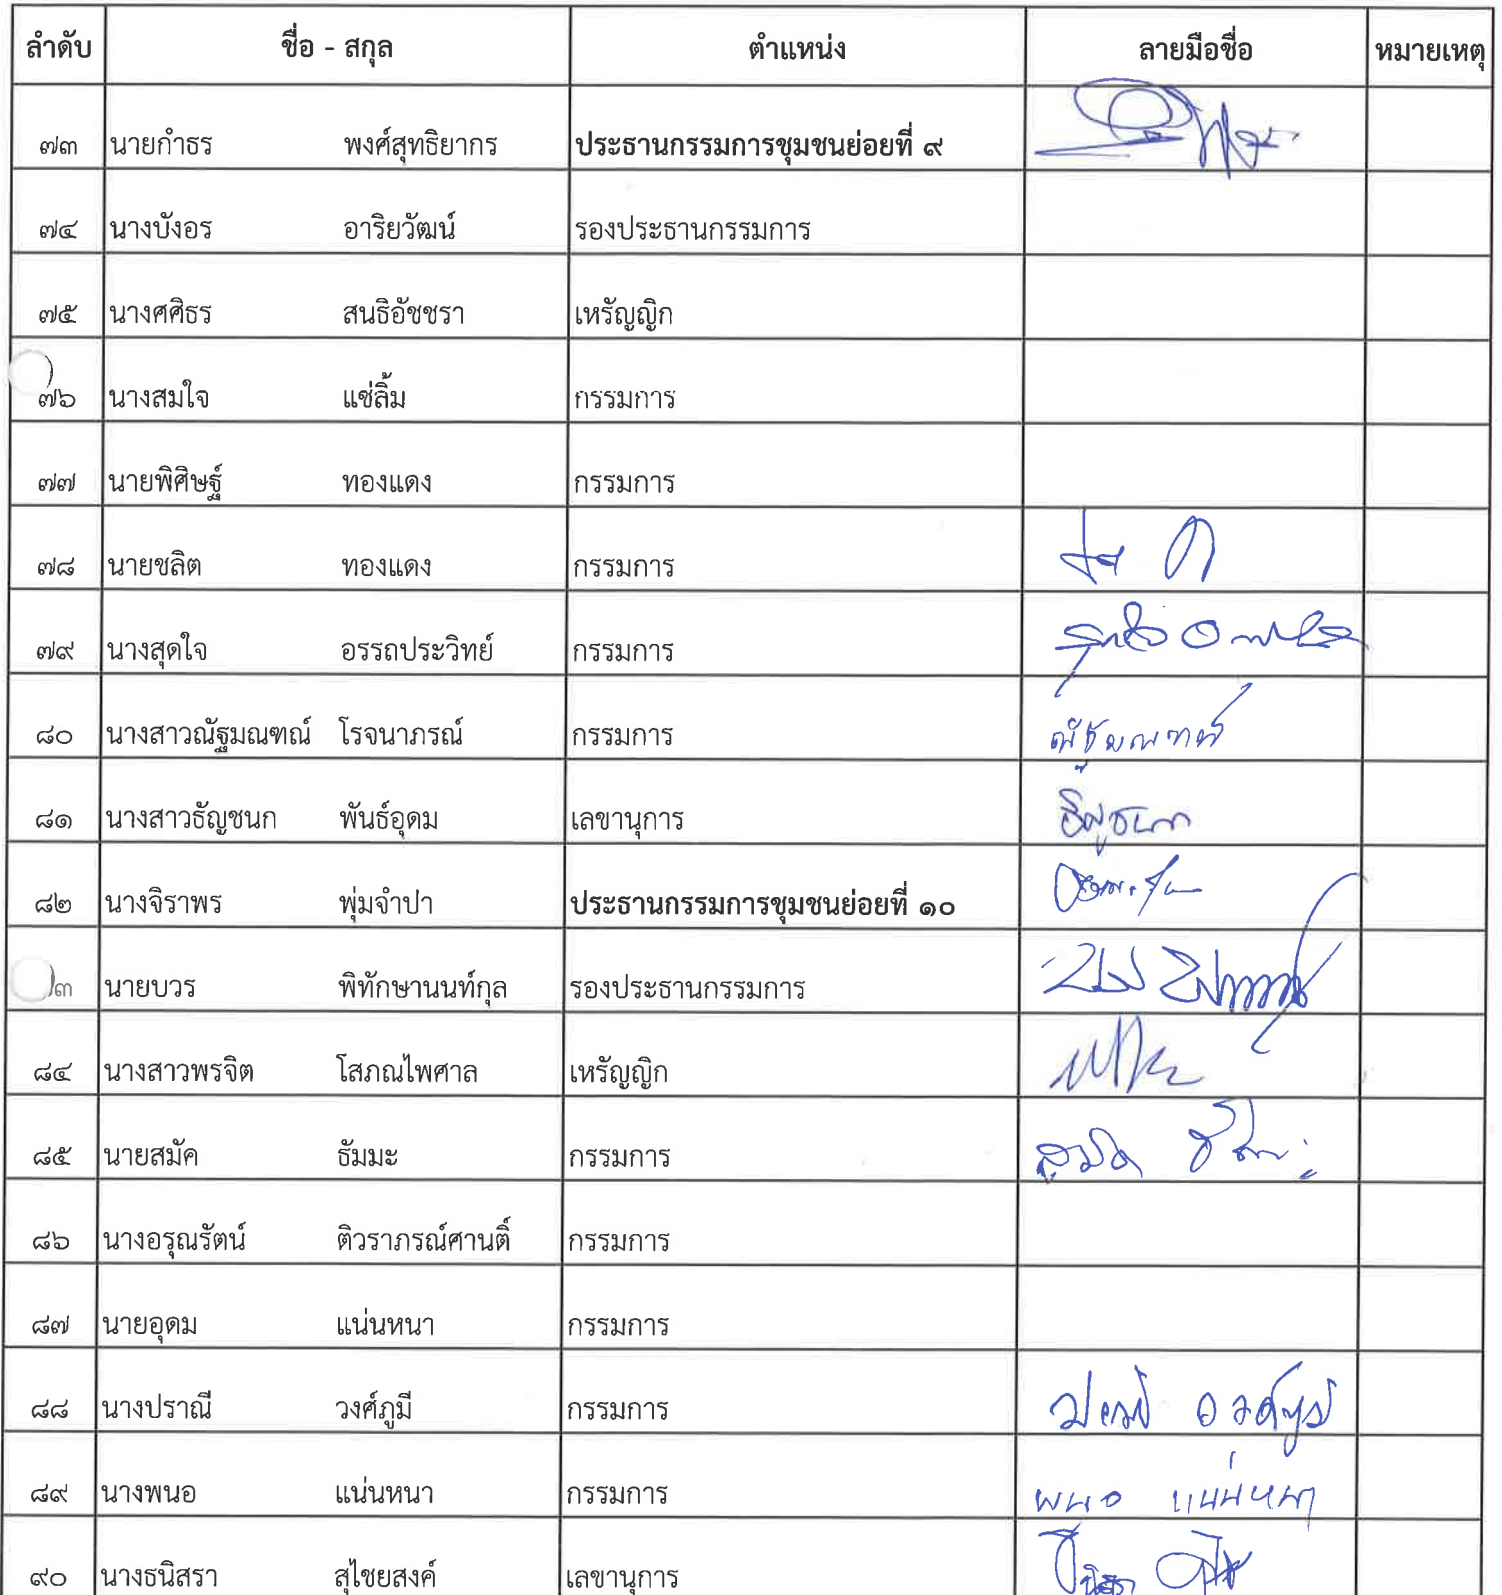 ลำดับ ชื่อ - สกุล ตำแหน่ง ลายมือชื่อ หมายเหตุ
๗๓ นายกำธร พงศ์สุทธิยากร ประธานกรรมการชุมชนย่อยที่ ๙
๗๔ นางบังอร อาริยวัฒน์ รองประธานกรรมการ
๗๕ นางศศิธร สนธิอัชชรา เหรัญญิก
๗๖ นางสมใจ แซ่ลิ้ม กรรมการ
๗๗ นายพิศิษฐ์ ทองแดง กรรมการ
๗๘ นายชลิต ทองแดง กรรมการ
๗๙ นางสุดใจ อรรถประวิทย์ กรรมการ
๘๐ นางสาวณัฐมณฑณ์ โรจนาภรณ์ กรรมการ ณัฐมณฑณ์
๘๑ นางสาวธัญชนก พันธ์อุดม เลขานุการ ธัญชนก
๘๒ นางจิราพร พุ่มจำปา ประธานกรรมการชุมชนย่อยที่ ๑๐
๓ นายบวร พิทักษานนท์กุล รองประธานกรรมการ
๘๔ นางสาวพรจิต โสภณไพศาล เหรัญญิก
๘๕ นายสมัค ธัมมะ กรรมการ
๘๖ นางอรุณรัตน์ ติวราภรณ์ศานติ์ กรรมการ
๘๗ นายอุดม แน่นหนา กรรมการ
๘๘ นางปราณี วงศ์ภูมี กรรมการ ปราณี วงศ์ภูมี
๘๙ นางพนอ แน่นหนา กรรมการ พนอ แน่นหนา
๙๐ นางธนิสรา สุไชยสงค์ เลขานุการ